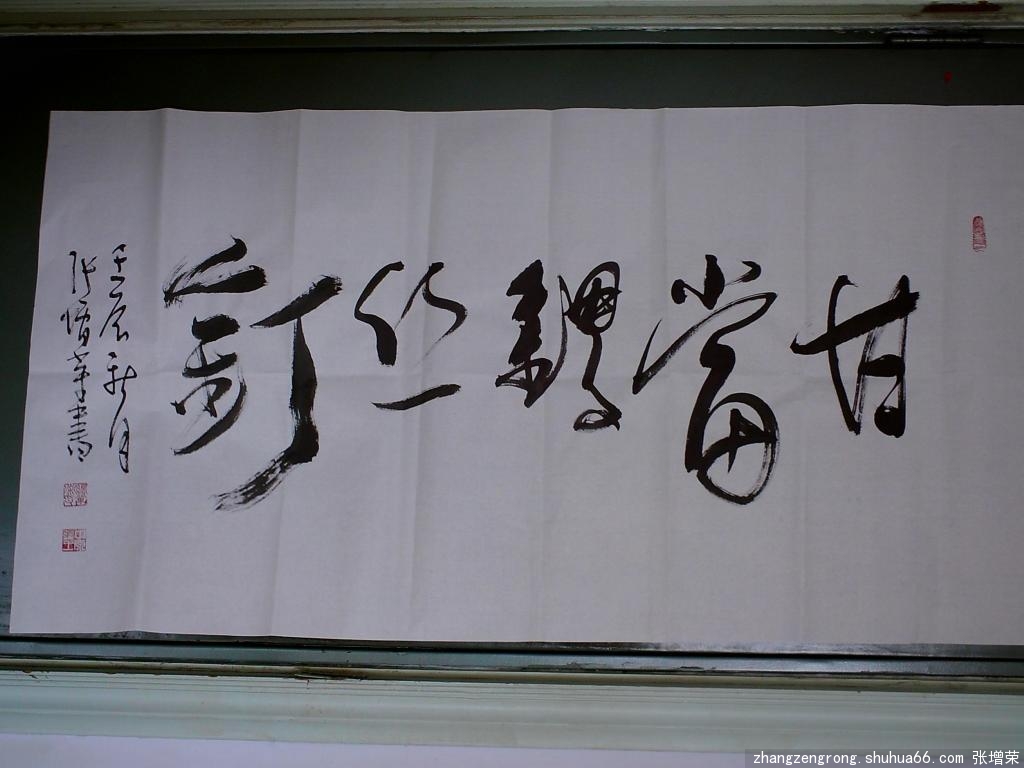 甘當螺丝釘
壬辰秋月
张增荣書
zhangzengrong.shuhua66.com 张增荣